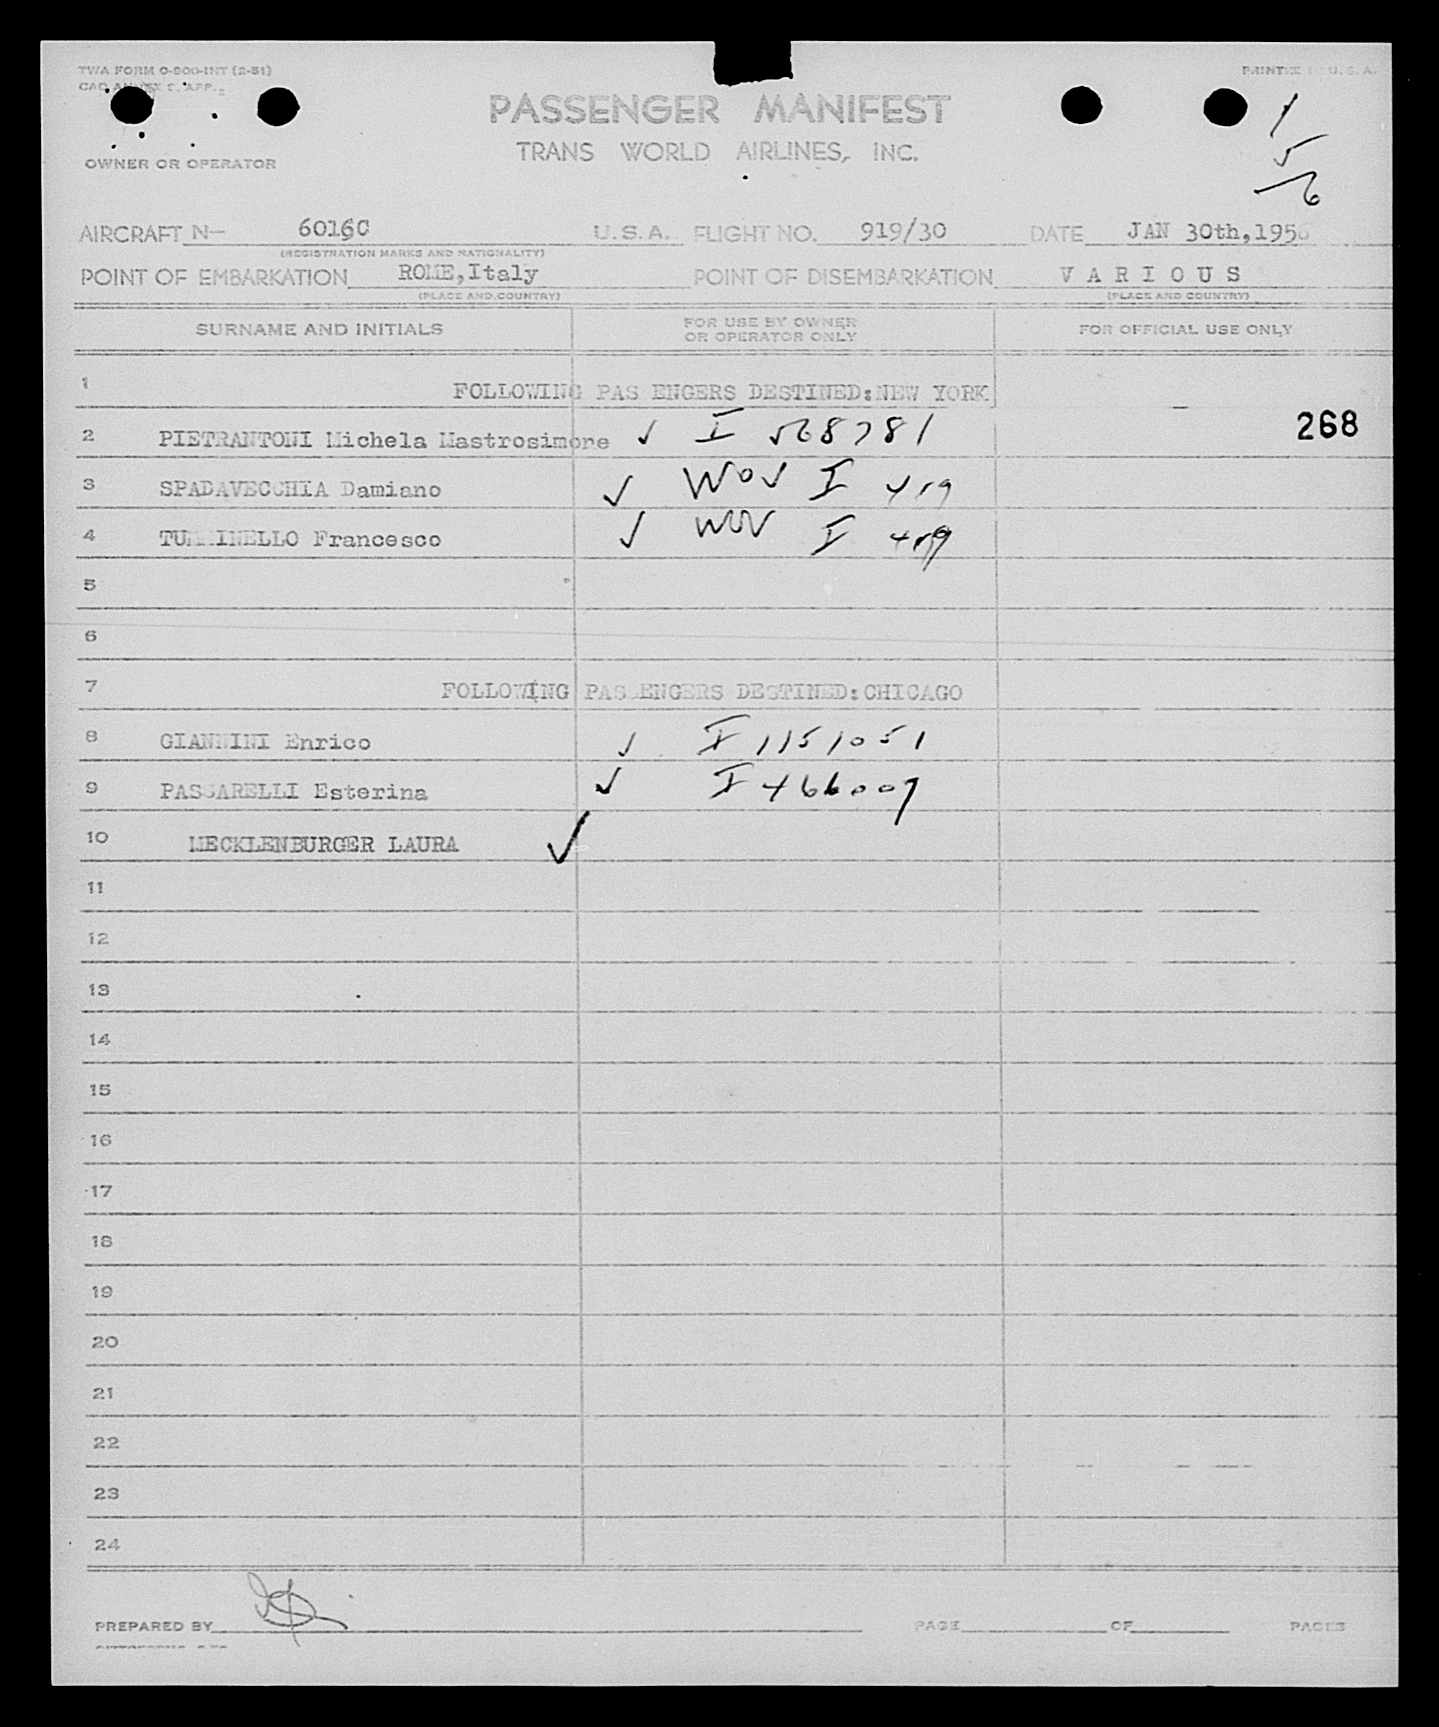 TWA FORM O-800-INT (2-51)
PRINTED IN U. S. A.
PASSENGER MANIFEST
TRANS WORLD AIRLINES, INC.
OWNER OR OPERATOR
1
5
6
AIRCRAFT N- 6016C U.S.A. FLIGHT NO. 919/30 DATE JAN 30th,1956
(REGISTRATION MARKS AND NATIONALITY)
POINT OF EMBARKATION ROME,Italy POINT OF DISEMBARKATION V A R I O U S
(PLACE AND COUNTRY) (PLACE AND COUNTRY)
SURNAME AND INITIALS FOR USE BY OWNER OR OPERATOR ONLY FOR OFFICIAL USE ONLY
1 FOLLOWING PAS ENGERS DESTINED:NEW YORK
2 PIETRANTONI Michela Mastrosimone ✓ I 568781 268
3 SPADAVECCHIA Damiano ✓ WOV I 419
4 Francesco ✓ WOV I 419
5
6
7 FOLLOWING PASSENGERS DESTINED:CHICAGO
8 GIANNINI Enrico ✓ I 1151051
9 PASSARELLI Esterina ✓ I 466007
10 MECKLENBURGER LAURA ✓
11
12
13
14
15
16
17
18
19
20
21
22
23
24
PREPARED BY PAGE OF PAGES